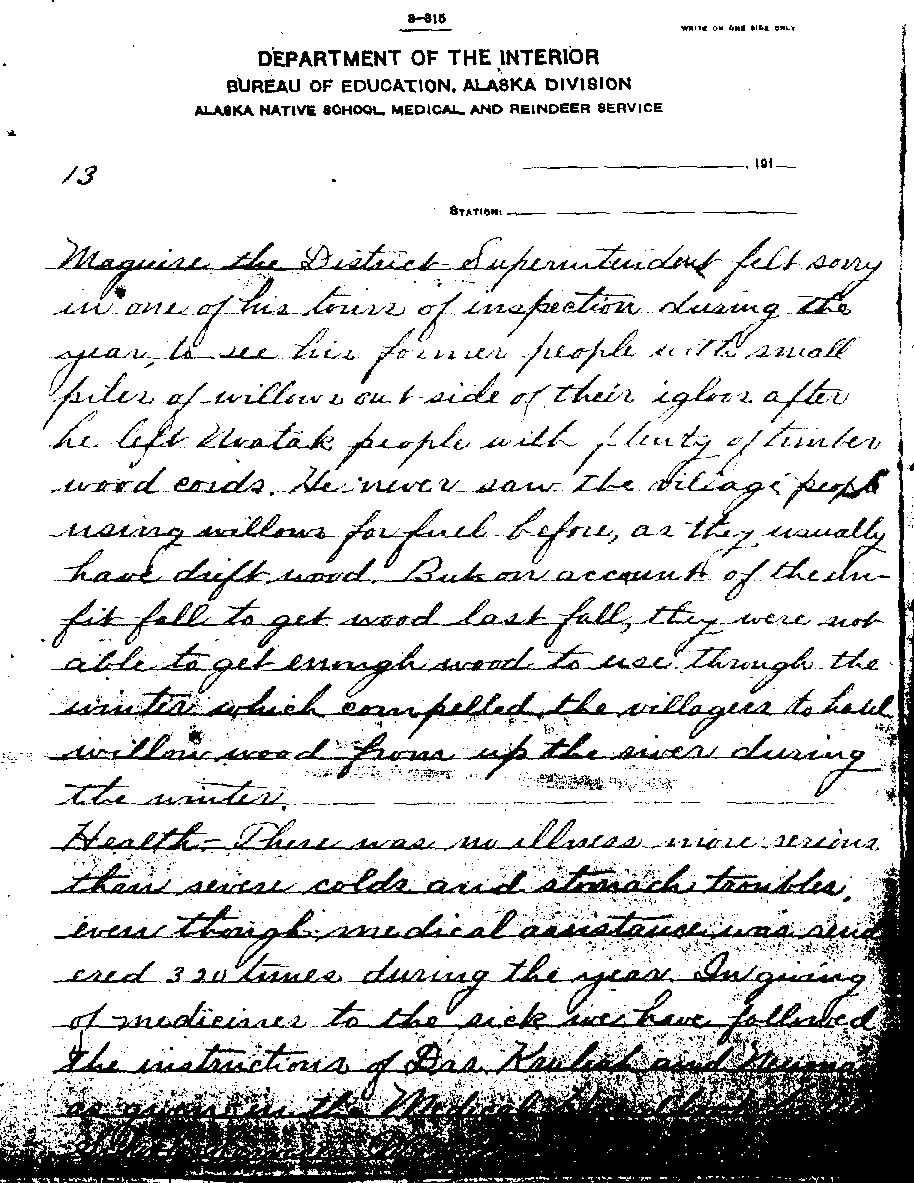 8-315
WRITE ON ONE SIDE ONLY
DEPARTMENT OF THE INTERIOR
BUREAU OF EDUCATION, ALASKA DIVISION
ALASKA NATIVE SCHOOL, MEDICAL, AND REINDEER SERVICE
, 191
13
STATION:
Maguire the District Superintendent felt sorry
in one of his tours of inspection during the
year, to see his former people with small
piles of willows out side of their igloos after
he left Noatak people with plenty of timber
wood cords. He never saw the village people
using willows for fuel before, as they usually
have drift wood. But on account of the un-
fit fall to get wood last fall, they were not
able to get enough wood to use through the
winter which compelled the villagers to haul
willow wood from up the river during
the winter.
Health - There was no illness more serious
than severe colds and stomach troubles,
even though medical assistance was rend
ered 320 times during the year. In giving
of medicines to the sick we have followed
the instructions of Drs. and
as given in the Medical